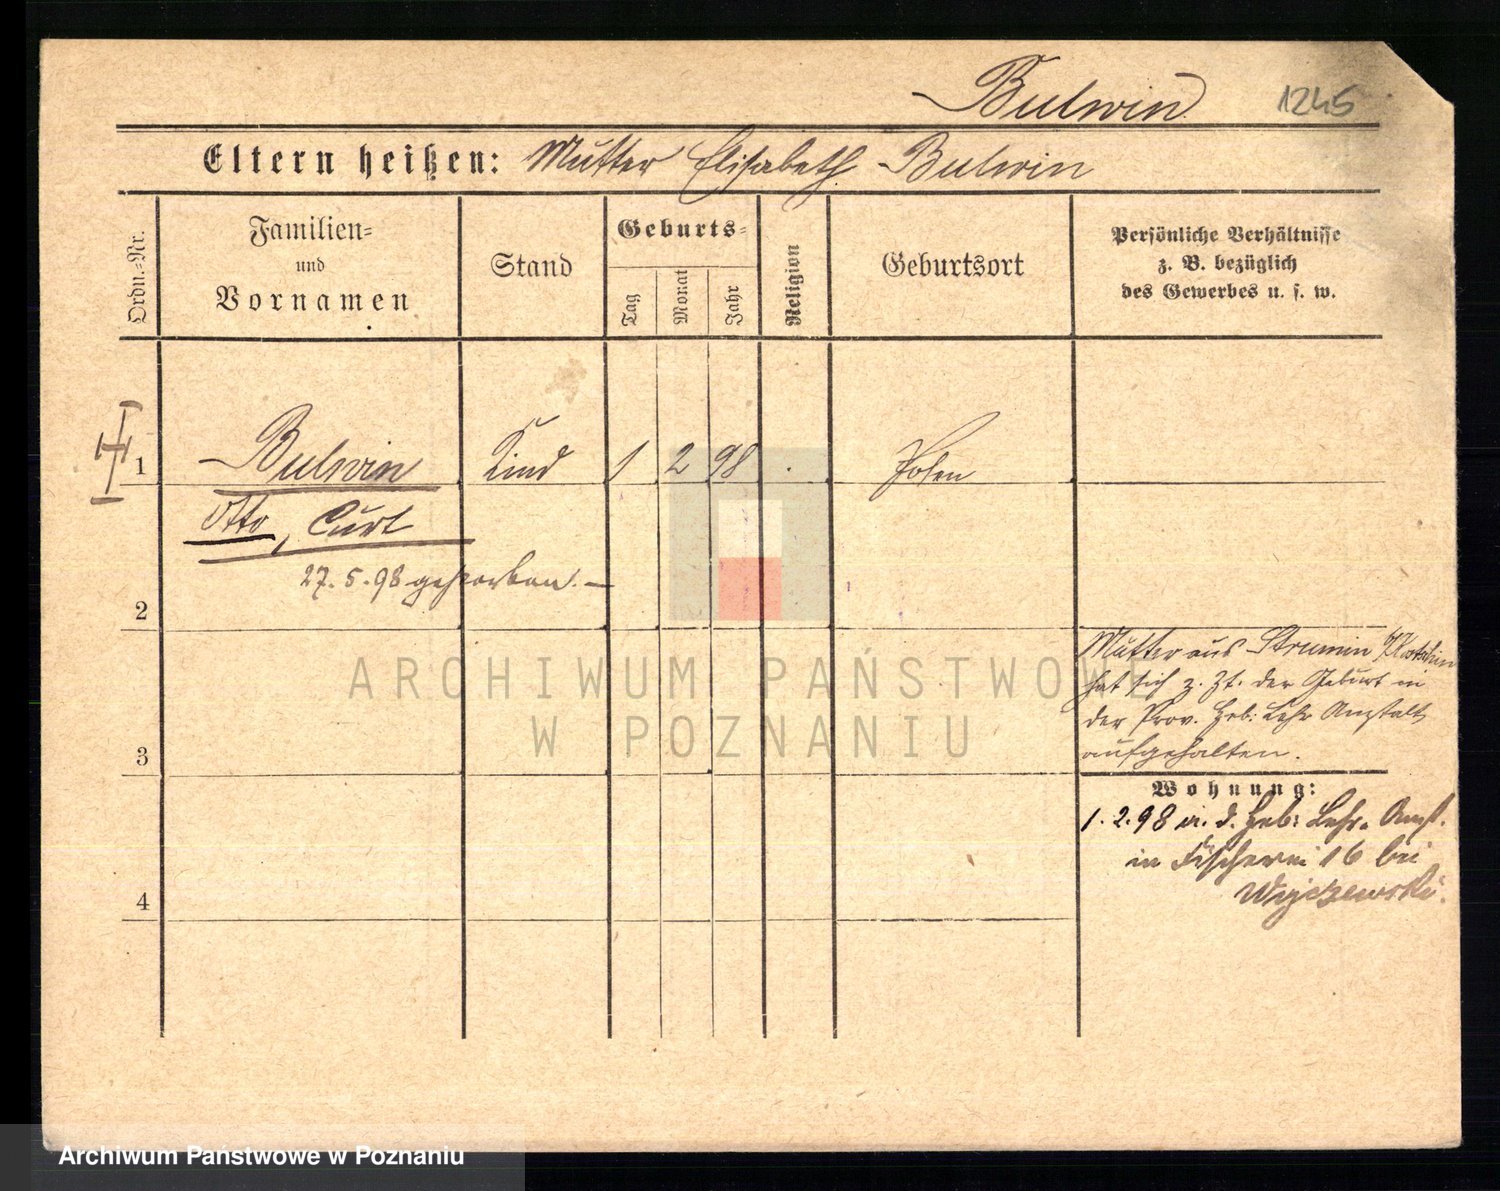 Bulwin 1245
Eltern heißen: Mutter Elisabeth Bulwin
Ordn.-Nr.
Familien-
und
Vornamen
Stand
Geburts-
Tag
Monat
Jahr
Religion
Geburtsort
Persönliche Verhältnisse
z. B. bezüglich
des Gewerbes u. s. w.
1 Bulwin Kind 1 2 98 Posen
Otto, Curt
27.5.98 gestorben. —
2
Mutter aus
hat sich z. Zt. der Geburt in
der Prov. Heb: Lehr Anstalt
aufgehalten.
3
Wohnung:
1.2.98 i. d. Heb: Lehr. Anst.
in Fischerei 16 bei
4
ARCHIWUM PAŃSTWOWE
W POZNANIU
Archiwum Państwowe w Poznaniu